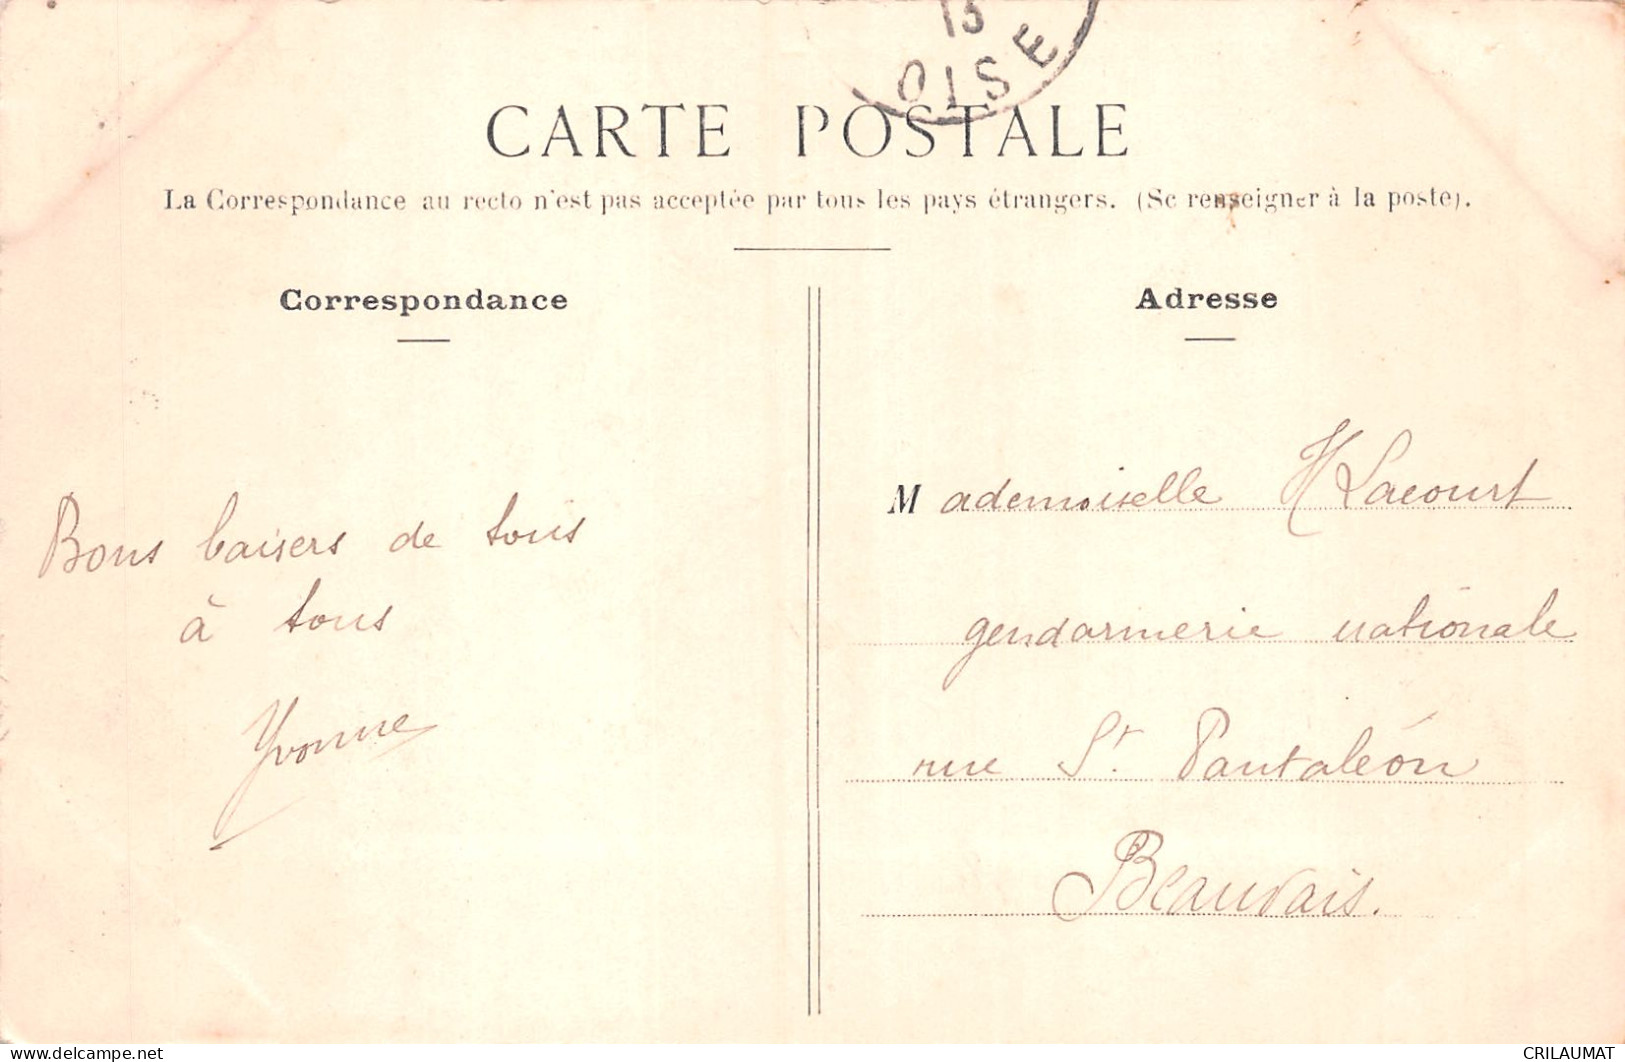 13
OISE
CARTE POSTALE
La Correspondance au recto n'est pas acceptée par tous les pays étrangers. (Se renseigner à la poste).
Correspondance
Adresse
Bons baisers de tous
à tous
Yvonne
Mademoiselle H Lacourt
gendarmerie nationale
rue St. Pantaléon
Beauvais.
https://www.delcampe.net
CRILAUMAT